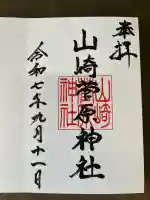 奉拝
山崎菅原神社
山崎
神社
令和七年九月十一日